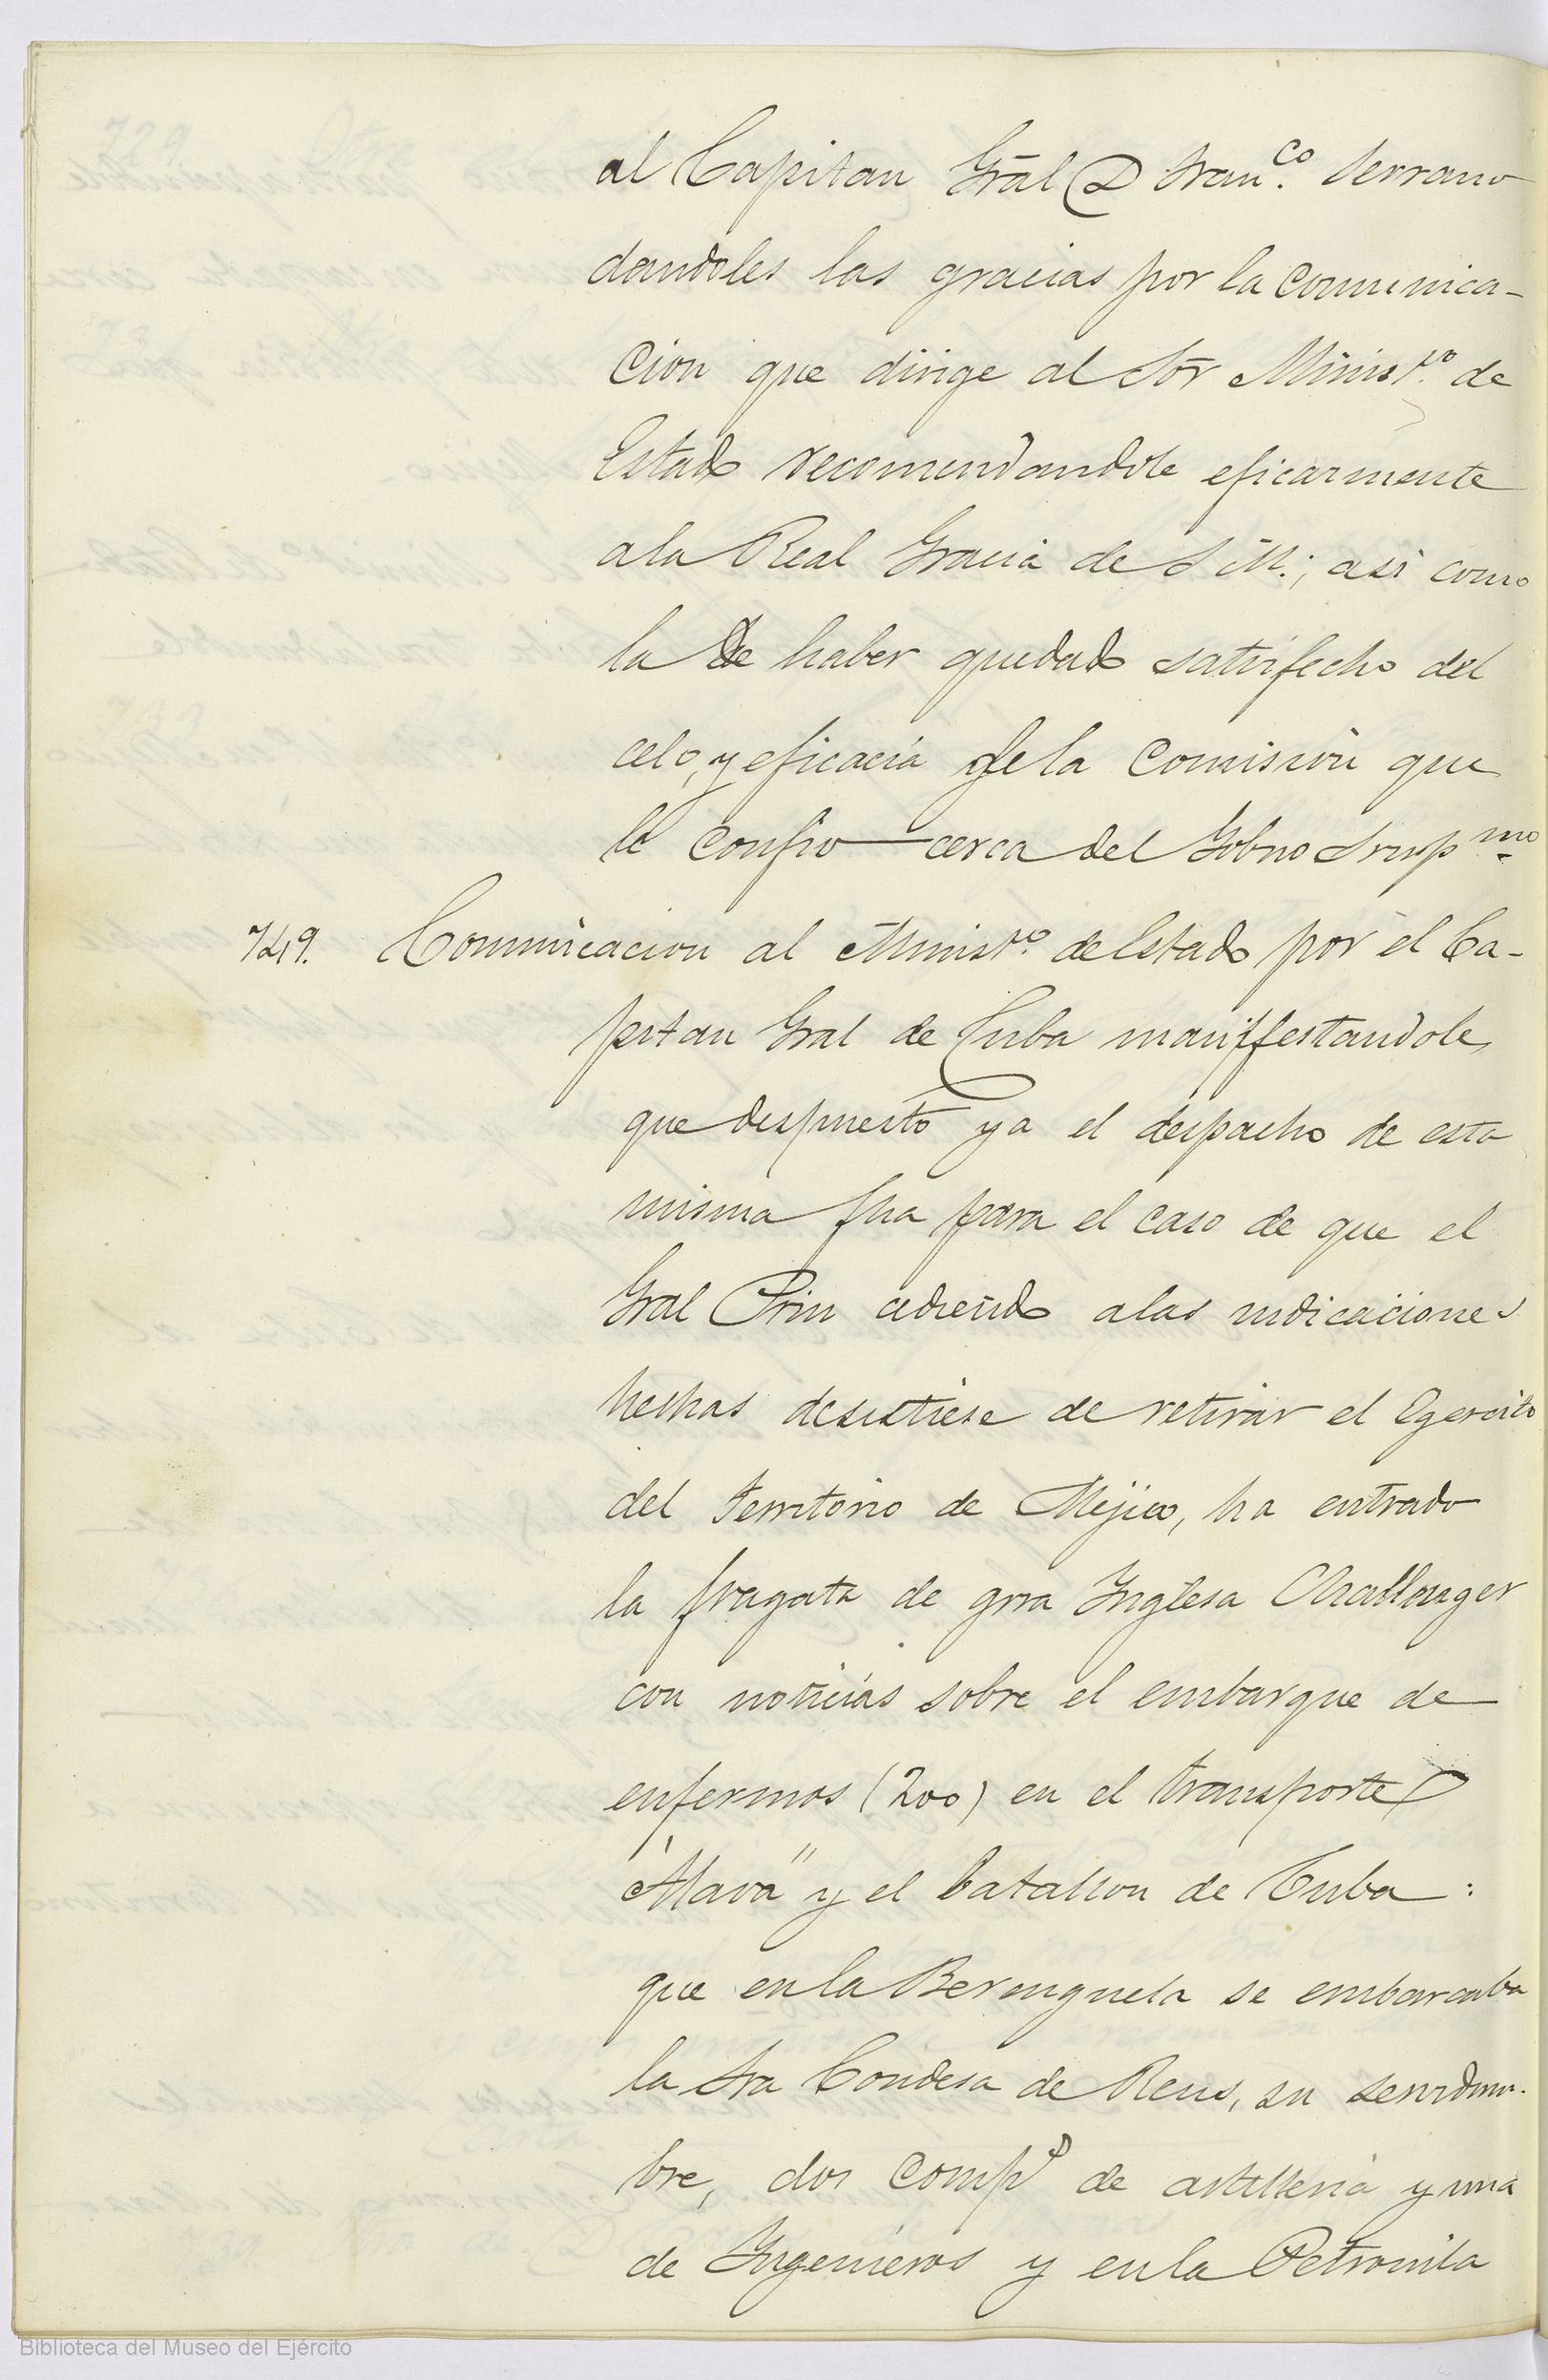 al Capitan Gral D Fran.co Serrano
dandoles las gracias por la comunica-
cion que dirige al Sor Minist.ro de
Estado recomendandole eficazmente
a la Real Gracia de S M.; asi como
la de haber quedado satisfecho del
celo, y eficacia de la comision que
le confio cerca del Gobno Supmo
749. Comunicacion al Minist.ro de Estado por el Ca-
pitan Gral de Cuba manifestandole
que despuesto ya el despacho de esta
misma fha para el caso de que el
Gral Prim cediendo a las indicaciones
hechas desistiese de retirar el Egercito
del territorio de Mejico, ha entrado
la fragata de grra Inglesa Challenger
con noticias sobre el embarque de
enfermos (200) en el transporte
"Alava" y el batallon de Cuba:
que en la Berenguela se embarcaba
la Sra Condesa de Reus, su servidum-
bre, dos comps de artilleria y una
de Ingenieros y en la Petronila
Biblioteca del Museo del Ejército